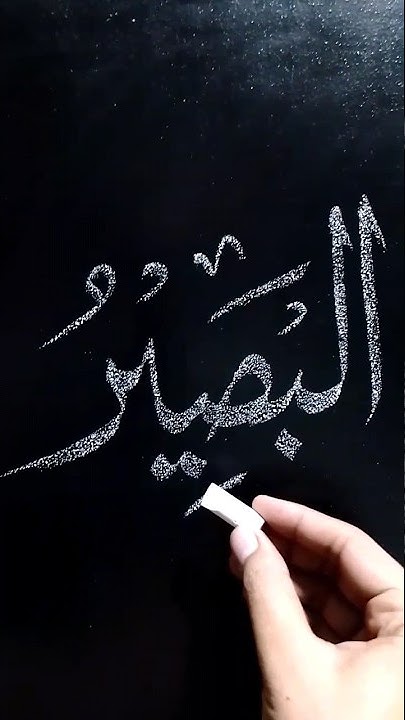 الْبَصِيْرُ